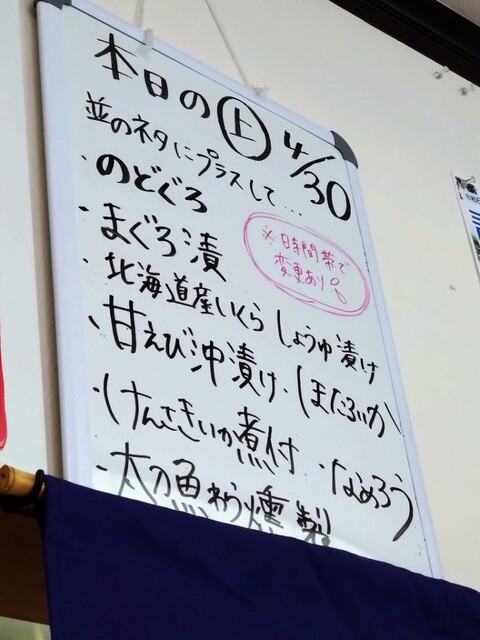 本日の㊤ 4/30
並のネタにプラスして…
・のどぐろ
※時間帯で
変更あり
・まぐろ漬
・北海道産いくらしょうゆ漬け
・甘えび沖漬け・しまえび
・けんさきいか煮付・なめろう
・太刀魚 燻製